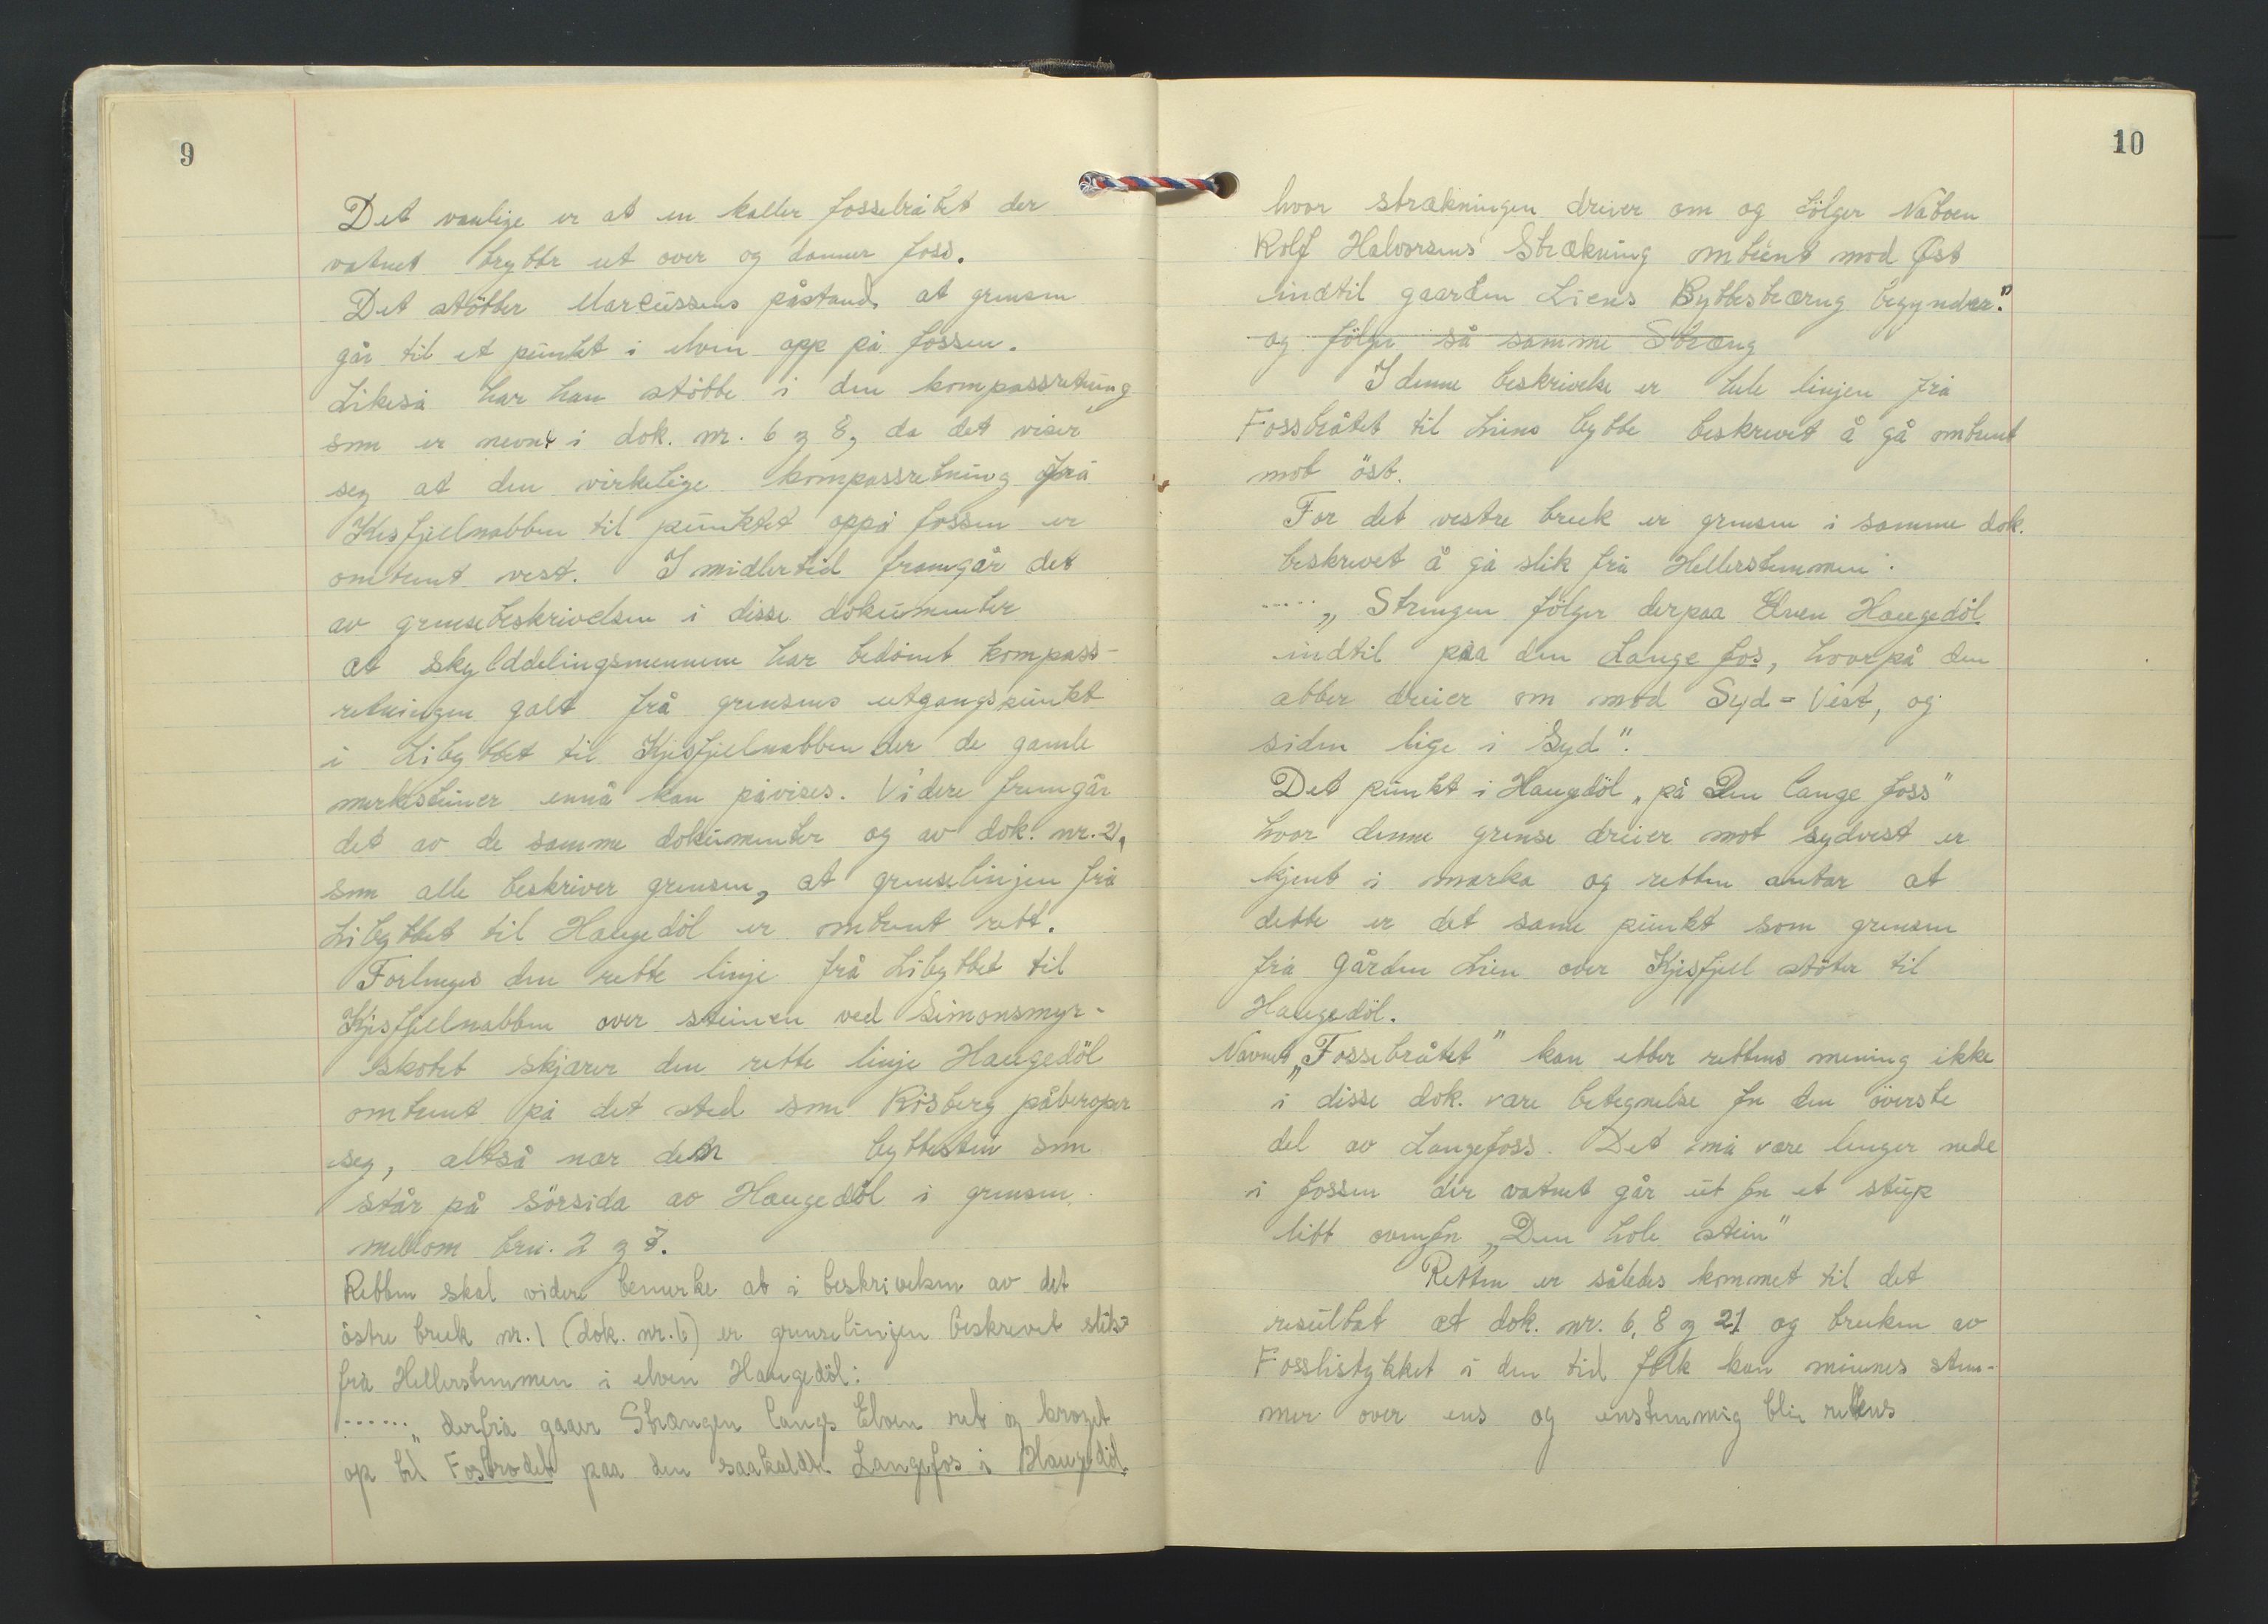 9
Det vanlige er at en kaller fossebråtet der
vatnet bryter ut over og danner foss.
Det støtter Marcussens påstand at grensen
går til et punkt i elven opp på fossen.
Likeså har han støtte i den kompassretning
som er nevnt i dok. nr. 6 og 8, da det viser
seg at den virkelige kompassretning frå
Kisfjellnabben til punktet oppå fossen er
omtrent vest. Imidlertid framgår det
av grensebeskrivelsen i disse dokumenter
at skylddelingsmennene har bedømt kompass-
retningen galt frå grensens utgangspunkt
i Libyttet til Kjesfjellnabben der de gamle
merkesteiner ennå kan påvises. Videre fremgår
det av de samme dokumenter og av dok. nr. 21,
som alle beskriver grensen, at grenselinjen frå
Libyttet til Haugedöl er omtrent rett.
Forlenges den rette linje frå Libyttet til
Kjisfjellnabben over steinen ved Simonsmyr-
skotet skjærer den rette linje Haugedöl
omtrent på det sted som Risberg påberoper
seg, altså nær den byttestein som
står på sörsida av Haugedöl i grensen
mellom bru. 2 og 3.
Retten skal videre bemerke at i beskrivelsen av det
östre bruk nr. 1 (dok. nr. 6) er grenselinjen beskrevet slik
frå Hellerstemmen i elven Haugedöl:
...... „derfra gaaer Strængen langs Elven ret og kroget
op til Fosbrodet paa den saakaldte Langefos i Haugedöl
10
hvor strækningen dreier om og fölger Naboen
Rolf Halvorsens Strækning omtrent mod Øst
indtil gaarden Liens Byttestræng begynder."
og fölger så samme Stræng
I denne beskrivelse er hele linjen frå
Fossbråtet til Liens bytte beskrevet å gå omtrent
mot öst.
For det vestre bruk er grensen i samme dok.
beskrevet å gå slik frå Hellerstemmen:
..... „Strengen fölger derpaa Elven Haugedöl
indtil paa den Lange fos, hvorpå den
atter dreier om mod Syd=Vest, og
siden lige i Syd".
Det punkt i Haugedöl „på Den lange foss"
hvor denne grense dreier mot sydvest er
kjent i marka og retten antar at
dette er det same punkt som grensen
frå gården Lien over Kjesfjell støter til
Haugedöl.
Navnet „Fossebråtet" kan etter rettens mening ikke
i disse dok. være betegnelse for den överste
del av Langefoss. Det må være lenger nede
i fossen der vatnet går ut for et stup
litt ovenfor „Den hole stein"
Retten er således kommet til det
resultat at dok. nr. 6, 8 og 21 og bruken av
Fosslistykket i den tid folk kan minnes stem-
mer over ens og enstemmig blir rettens